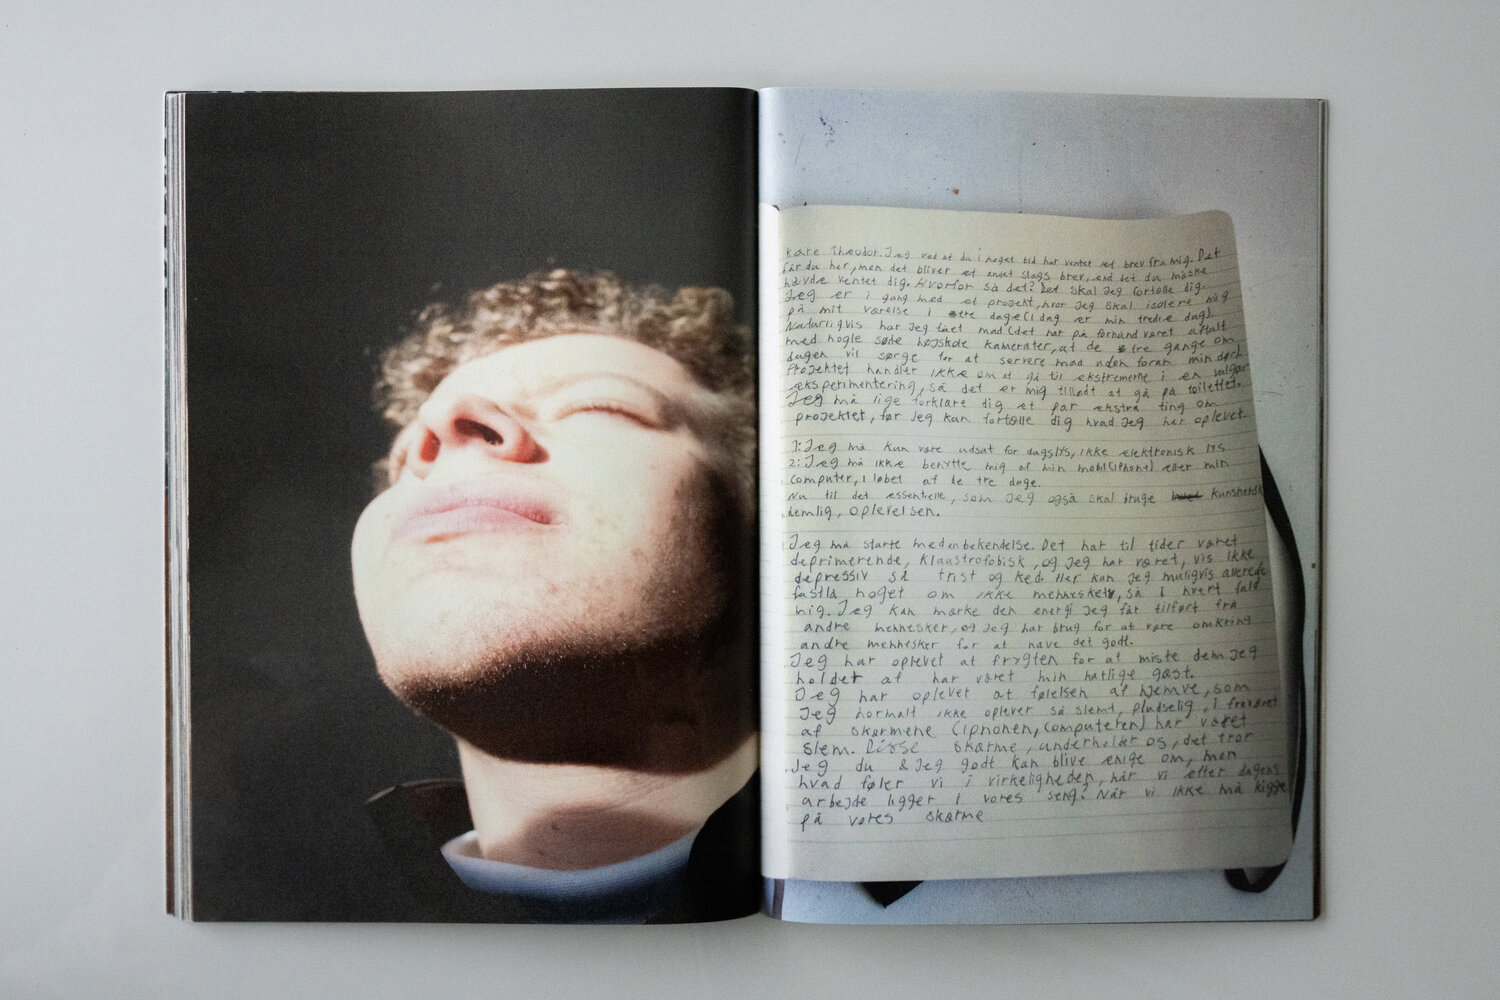 Kære Theodor. Jeg ved at du i noget tid har ventet et brev fra mig. Det
får du her, men det bliver et andet slags brev, end det du måske
havde ventet dig. Hvorfor så det? Det skal Jeg fortælle dig.
Jeg er i gang med et projekt, hvor Jeg skal isolere mig
på mit værelse i tre dage (i dag er min tredie dag).
Naturligvis har Jeg fået mad (det har på forhånd været aftalt
med nogle søde højskole kamerater, at de tre gange om
dagen vil sørge for at servere mad uden foran min dør).
Projektet handler ikke om at gå til ekstremerne i en vulgær
eksperimentering, så det er mig tilladt at gå på toilettet.
Jeg må lige forklare dig et par ekstra ting om
projektet, før Jeg kan fortælle dig hvad Jeg har oplevet.
1: Jeg må kun være udsat for dagslys, ikke elektronisk lys
2: Jeg må ikke benytte mig af min mobil (iphone) eller min
computer, i løbet af de tre dage.
Nu til det essentielle, som Jeg også skal bruge
demlig, oplevelsen.
Jeg må starte med en bekendelse. Det har til tider været
deprimerende, klaustrofobisk, og Jeg har været, vis ikke
depressiv så trist og ked. Her kan Jeg muligvis allerede
fastlå noget om ikke mennesket, så i hvert fald
mig. Jeg kan mærke den energi Jeg får tilført fra
andre mennesker, og Jeg har brug for at være omkring
andre mennesker for at have det godt.
Jeg har oplevet at frygten for at miste dem Jeg
holder af har været min natlige gæst.
Jeg har oplevet at følelsen af hjemve, som
Jeg normalt ikke oplever så slemt, pludselig, i fraværet
af skærmene (iphonen, computeren) har været
slem. Disse skærme, underholder os, det tror
Jeg du & Jeg godt kan blive enige om, men
hvad føler vi i virkeligheden, når vi efter dagens
arbejde ligger i vores seng? Når vi ikke må kigge
på vores skærme